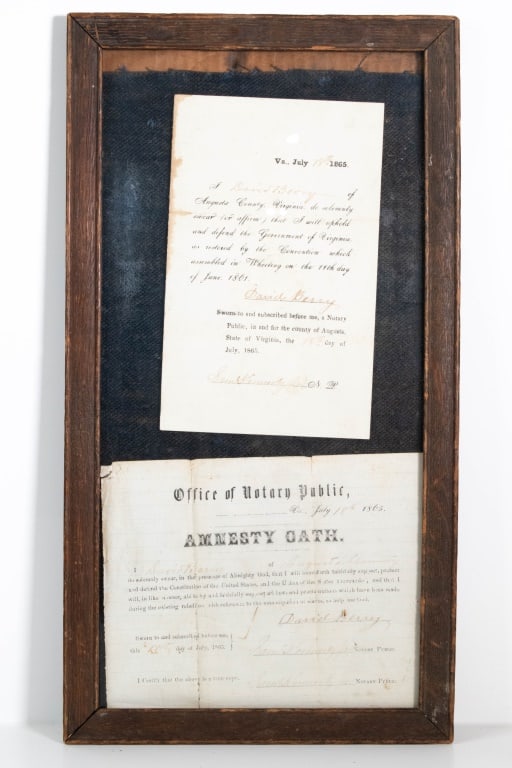 Va., July 18th 1865.
I David Berry of
Augusta County, Virginia, do solemnly
swear (or affirm) that I will uphold
and defend the Government of Virginia
as restored by the Convention which
assembled in Wheeling on the 11th day
of June, 1861.
David Berry
Sworn to and subscribed before me, a Notary
Public, in and for the county of Augusta,
State of Virginia, the 18th day of
July, 1865.
N. P.
Office of Notary Public,
Va., July 18th 1865.
AMNESTY OATH.
I David Berry of Augusta County
do solemnly swear, in the presence of Almighty God, that I will henceforth faithfully support, protect
and defend the Constitution of the United States, and the Union of the States thereunder; and that I
will, in like manner, abide by and faithfully support all laws and proclamations which have been made
during the existing rebellion with reference to the emancipation of slaves, so help me God.
David Berry
Sworn to and subscribed before me,
this 18th day of July, 1865.
Notary Public.
I Certify that the above is a true copy.
Notary Public.